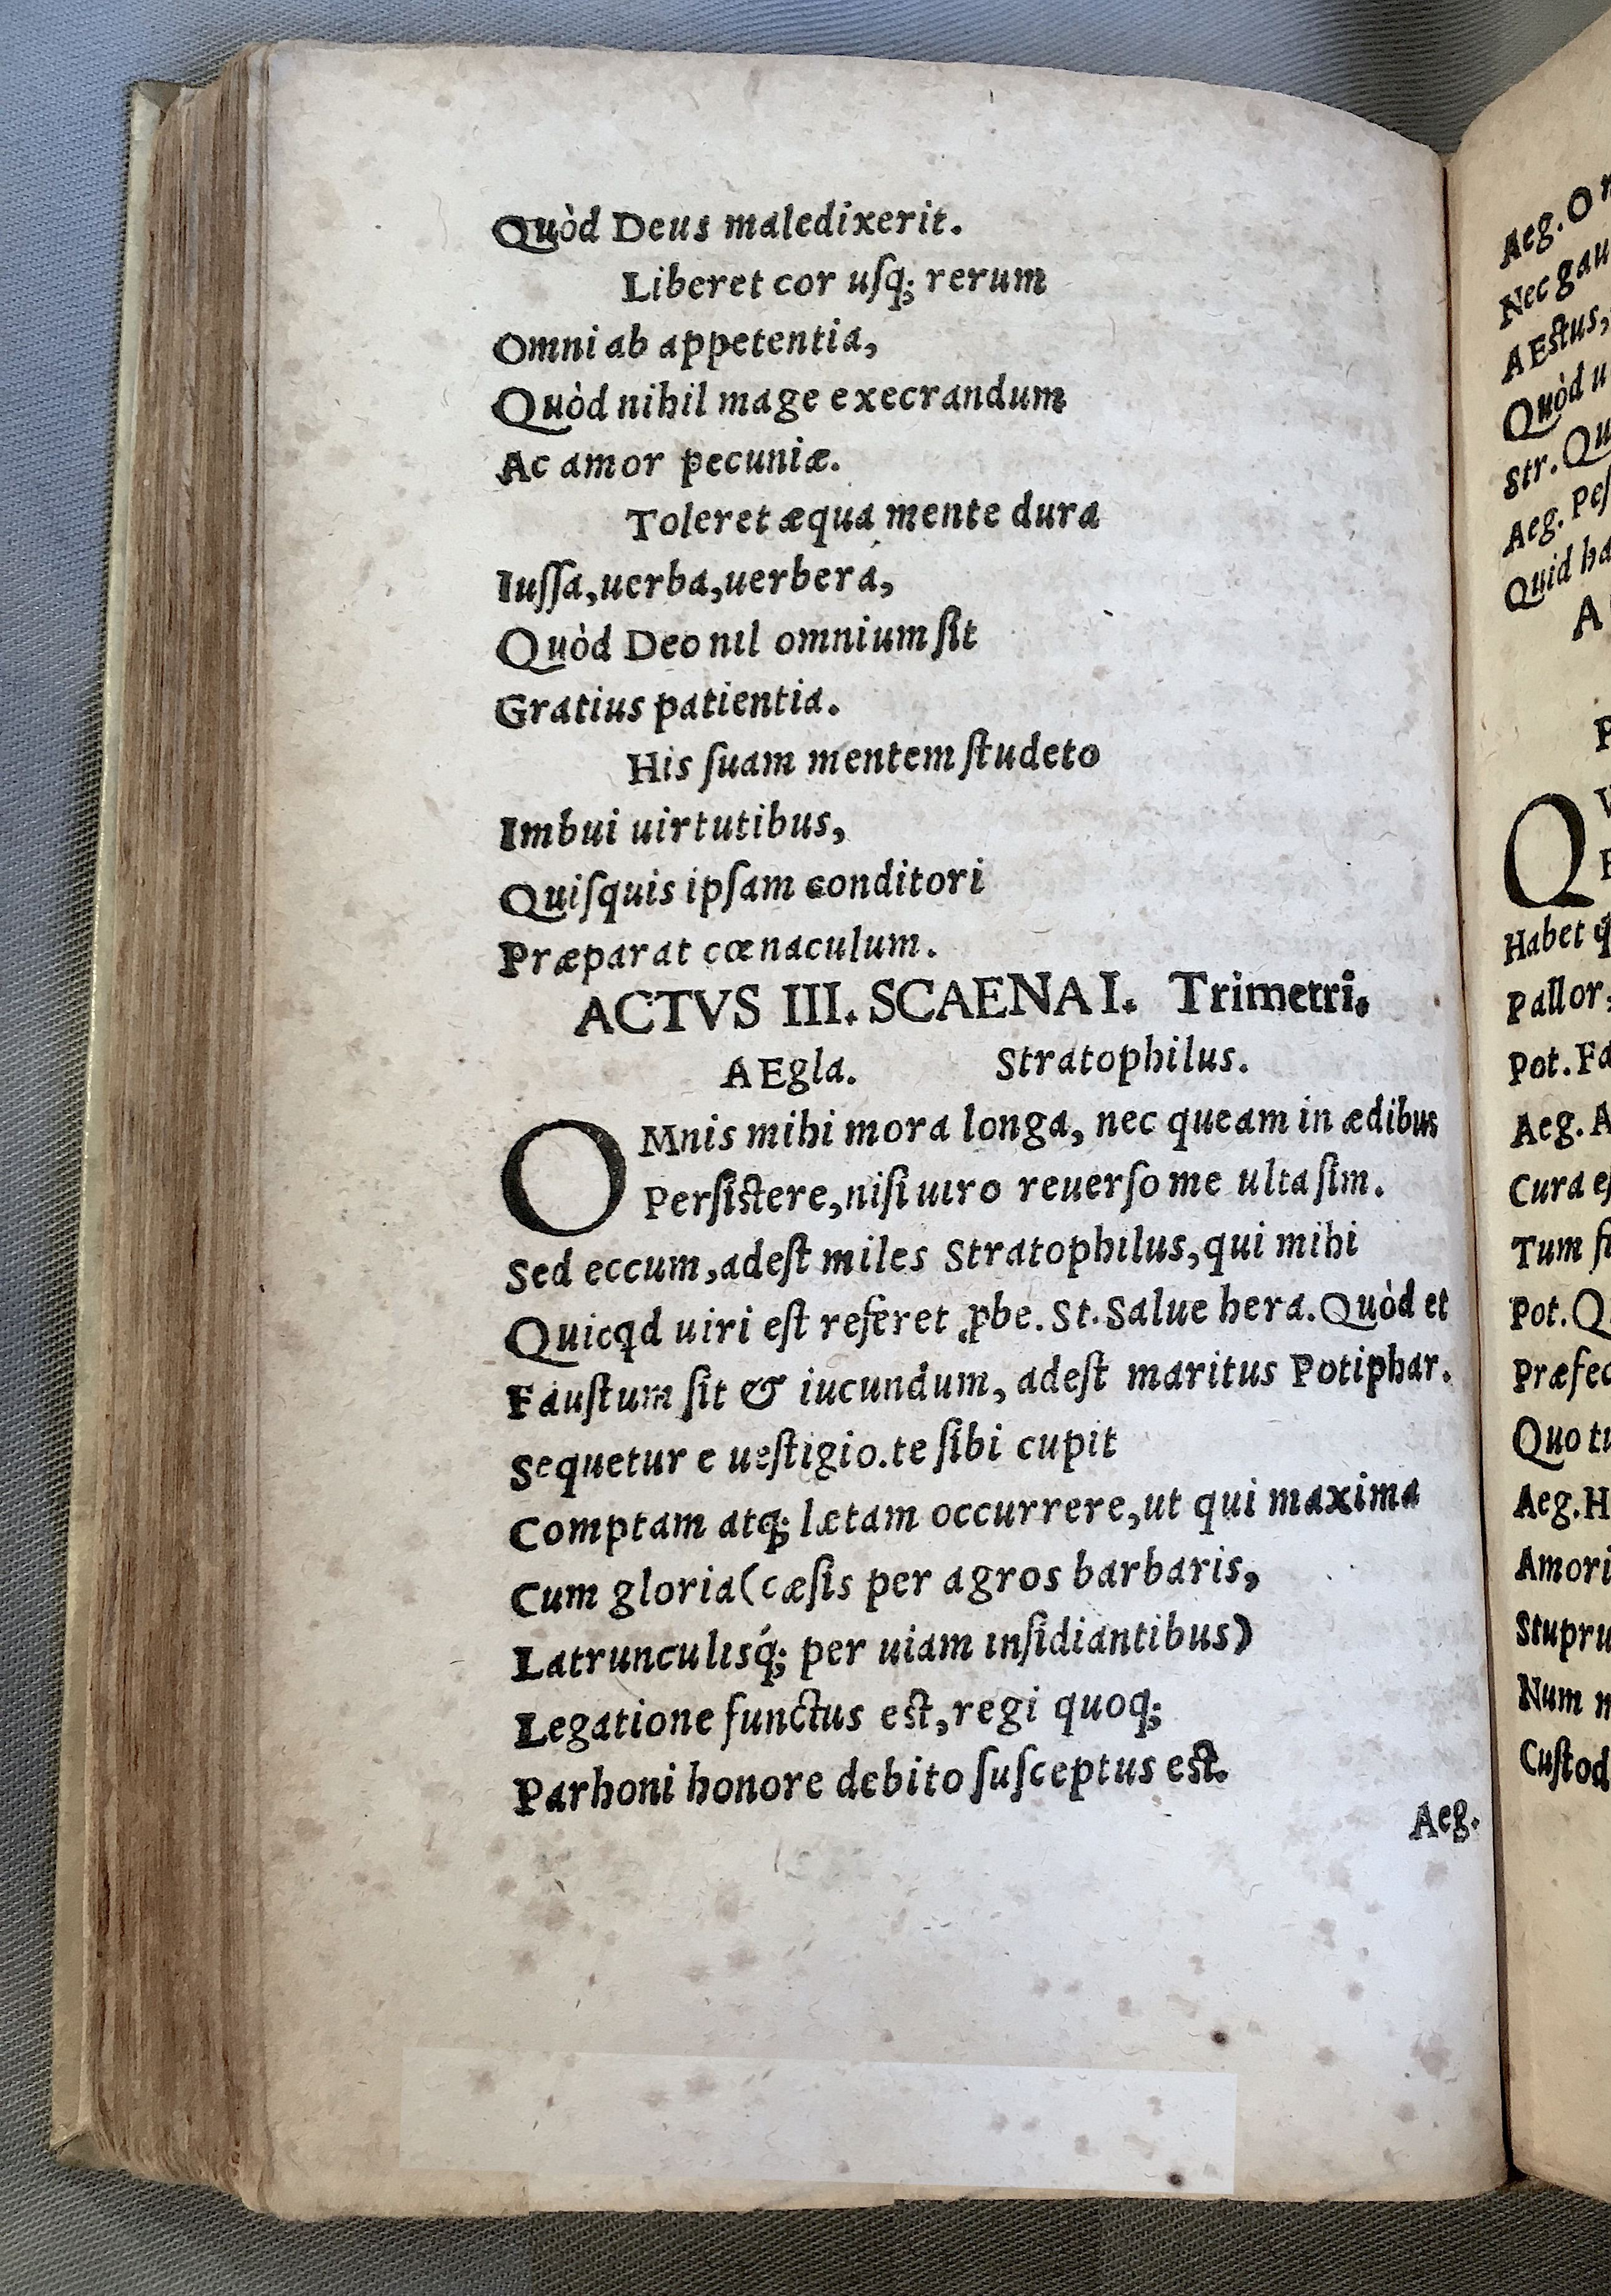 Quòd Deus maledixerit.
Liberet cor uſq; rerum
Omni ab appetentia,
Quòd nihil mage execrandum
Ac amor pecuniæ.
Toleret æqua mente dura
Iuſſa, uerba, uerbera,
Quòd Deo nil omnium ſit
Gratius patientia.
His ſuam mentem ſtudeto
Imbui uirtutibus,
Quiſquis ipſam conditori
Præparat cœnaculum.
ACTVS III. SCAENA I. Trimetri.
AEgla. Stratophilus.
OMnis mihi mora longa, nec queam in ædibus
Perſiſtere, niſi uiro reuerſo me ulta ſim.
Sed eccum, adeſt miles Stratophilus, qui mihi
Quicqd uiri eſt referet ꝓbe. St. Salue hera. Quòd et
Fauſtum ſit & iucundum, adeſt maritus Potiphar.
Sequetur e ueſtigio. te ſibi cupit
Comptam atq; lætam occurrere, ut qui maxima
Cum gloria (cæſis per agros barbaris,
Latrunculisq́; per uiam inſidiantibus)
Legatione functus eſt, regi quoq;
Parhoni honore debito ſuſceptus eſt.
Aeg.
Aeg. O
Nec gau
AEſtus,
Quòd u
Str. Qu
Aeg. Peſ
Quid ha
A
P
Q
Habet
Pallor
Pot. Fa
Aeg. A
Cura eſ
Tum ſi
Pot. Q
Præfec
Quo tu
Aeg. H
Amori
Stupru
Num n
Cuſtod